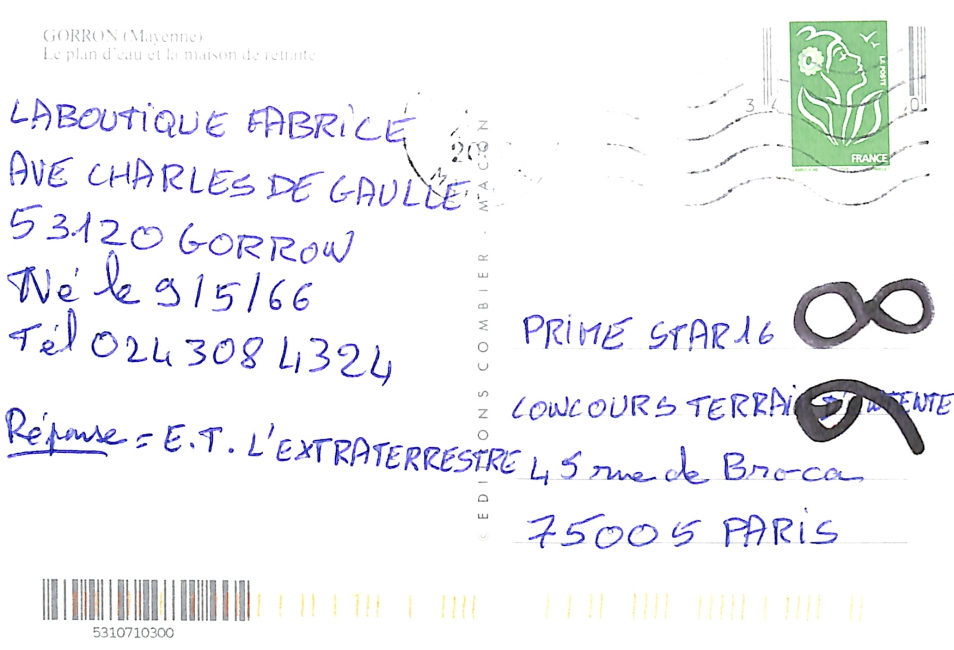 GORRON (Mayenne)
Le plan d'eau et la maison de retraite
LABOUTIQUE FABRICE
AVE CHARLES DE GAULLE
53120 GORRON
Né le 9/5/66
Tél 0243084324
Réponse = E.T. L'EXTRATERRESTRE
EDITIONS COMBIER - MACON
LA POSTE
FRANCE
PRIME STAR 16
CONCOURS TERRAIN D'ENTENTE
45 rue de Broca
75005 PARIS
8
9
5310710300